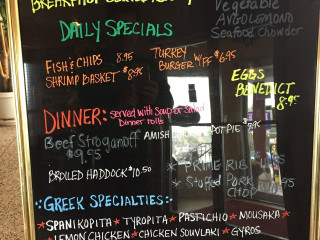 BREAKFAST
Vegetable
AVGOLEMONO
Seafood Chowder
DAILY SPECIALS
FISH & CHIPS 8.95
SHRIMP BASKET $8.95
TURKEY
BURGER W/FF $6.95
EGGS
BENEDICT
8.95
DINNER: served with Soup or Salad
Dinner rolls
Beef Stroganoff
$9.95
AMISH POT PIE
BROILED HADDOCK $10.50
* PRIME RIB
* Stuffed PORK
CHOP
GREEK SPECIALTIES:
* SPANIKOPITA * TYROPITA * PASTICHIO * MOUSAKA *
* LEMON CHICKEN * CHICKEN SOUVLAKI * GYROS